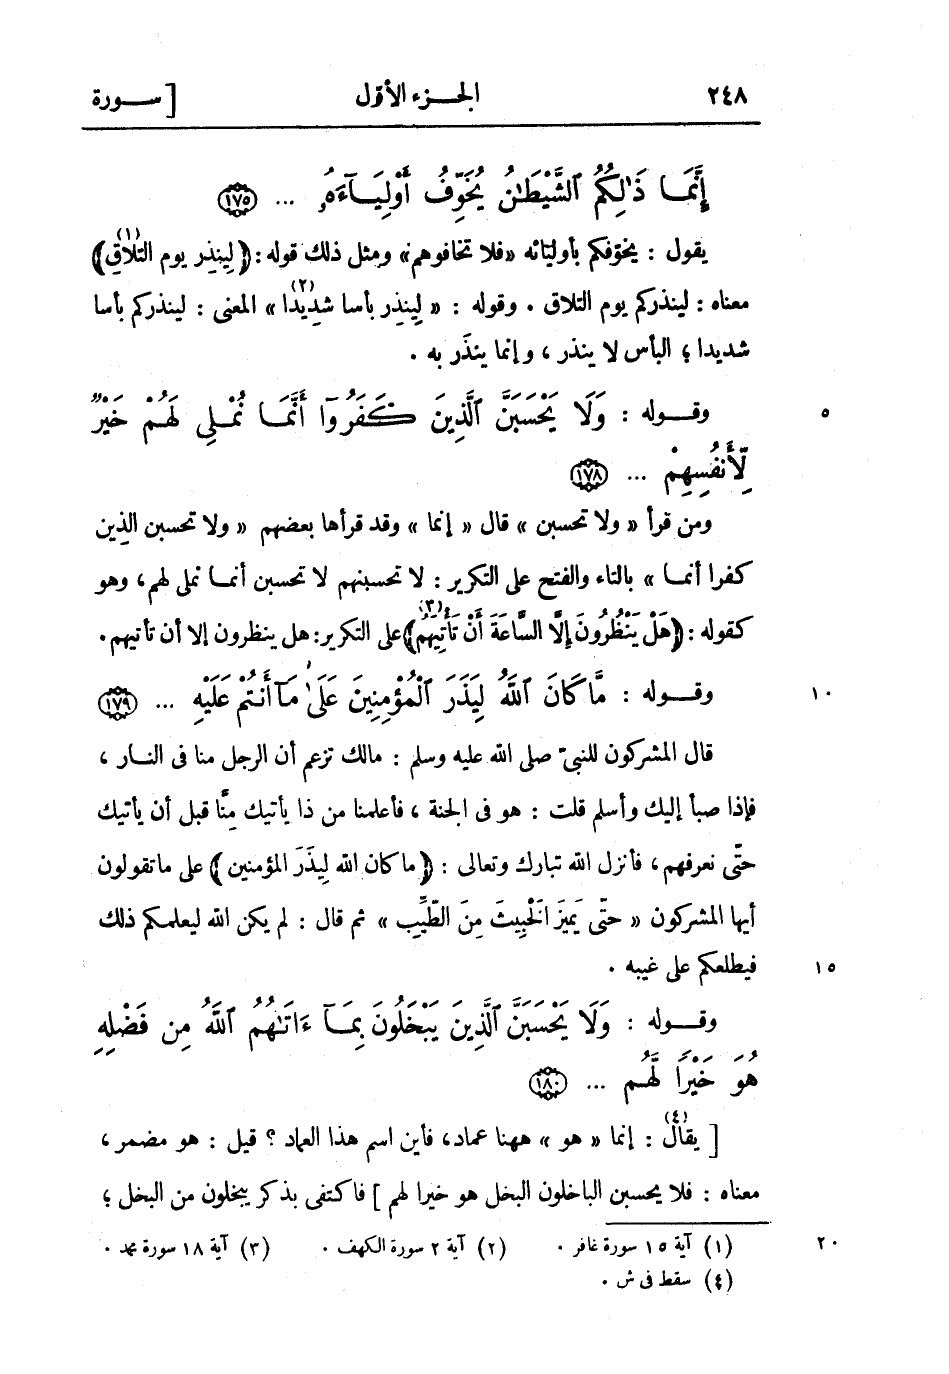 ٢٤٨ الجزء الأول [ سورة
إِنَّمَا ذَٰلِكُمُ ٱلشَّيْطَٰنُ يُخَوِّفُ أَوْلِيَآءَهُۥ ... ١٧٥
يقول : يخوّفكم بأوليائه «فلا تخافوهم» ومثل ذلك قوله : ﴿ لِيُنذِر يوم التلاقِ ﴾(١)
معناه : لينذركم يوم التلاق . وقوله : « لِينذِر بأسا شدِيدًا(٢) » المعنى : لينذركم بأسا
شديدا ؛ البأس لا ينذر ، وإنما ينذَر به .
وقوله : وَلَا يَحْسَبَنَّ ٱلَّذِينَ كَفَرُوٓا أَنَّمَا نُمْلِى لَهُمْ خَيْرٌ ٥
لِّأَنفُسِهِمْ ... ١٧٨
ومن قرأ « ولا تحسبن » قال « إنما » وقد قرأها بعضهم « ولا تحسبن الذين
كفروا أنما » بالتاء والفتح على التكرير : لا تحسبنهم لا تحسبن أنما نملى لهم، وهو
كقوله : ﴿ هَلْ يَنْظُرُونَ إِلَّا السَّاعَةَ أَنْ تَأْتِيَهُمْ ﴾(٣) على التكرير : هل ينظرون إلا أن تأتيهم .
وقوله : مَّا كَانَ ٱللَّهُ لِيَذَرَ ٱلْمُؤْمِنِينَ عَلَىٰ مَآ أَنتُمْ عَلَيْهِ ... ١٧٩ ١٠
قال المشركون للنبىّ صلى الله عليه وسلم : مالك تزعم أن الرجل منا فى النار ،
فإذا صبأ إليك وأسلم قلت : هو فى الجنة ، فأعلمنا من ذا يأتيك مِنَّا قبل أن يأتيك
حتّى نعرفهم، فأنزل الله تبارك وتعالى : ﴿ ما كان الله لِيذَرَ المؤمنين ﴾ على ما تقولون
أيها المشركون « حتّى يَمِيزَ الخبِيثَ مِنَ الطّيِّبِ » ثم قال : لم يكن الله ليعلمكم ذلك
فيطلعكم على غيبه . ١٥
وقوله : وَلَا يَحْسَبَنَّ ٱلَّذِينَ يَبْخَلُونَ بِمَآ ءَاتَىٰهُمُ ٱللَّهُ مِن فَضْلِهِ
هُوَ خَيْرًا لَّهُم ... ١٨٠
[ يقال(٤) : إنما « هو » ههنا عماد، فأين اسم هذا العماد ؟ قيل : هو مضمر ،
معناه : فلا يحسبن الباخلون البخل هو خيرا لهم ] فاكتفى بذكر يبخلون من البخل ؛
(١) آية ١٥ سورة غافر . (٢) آية ٢ سورة الكهف . (٣) آية ١٨ سورة محمد . ٢٠
(٤) سقط فى ش .